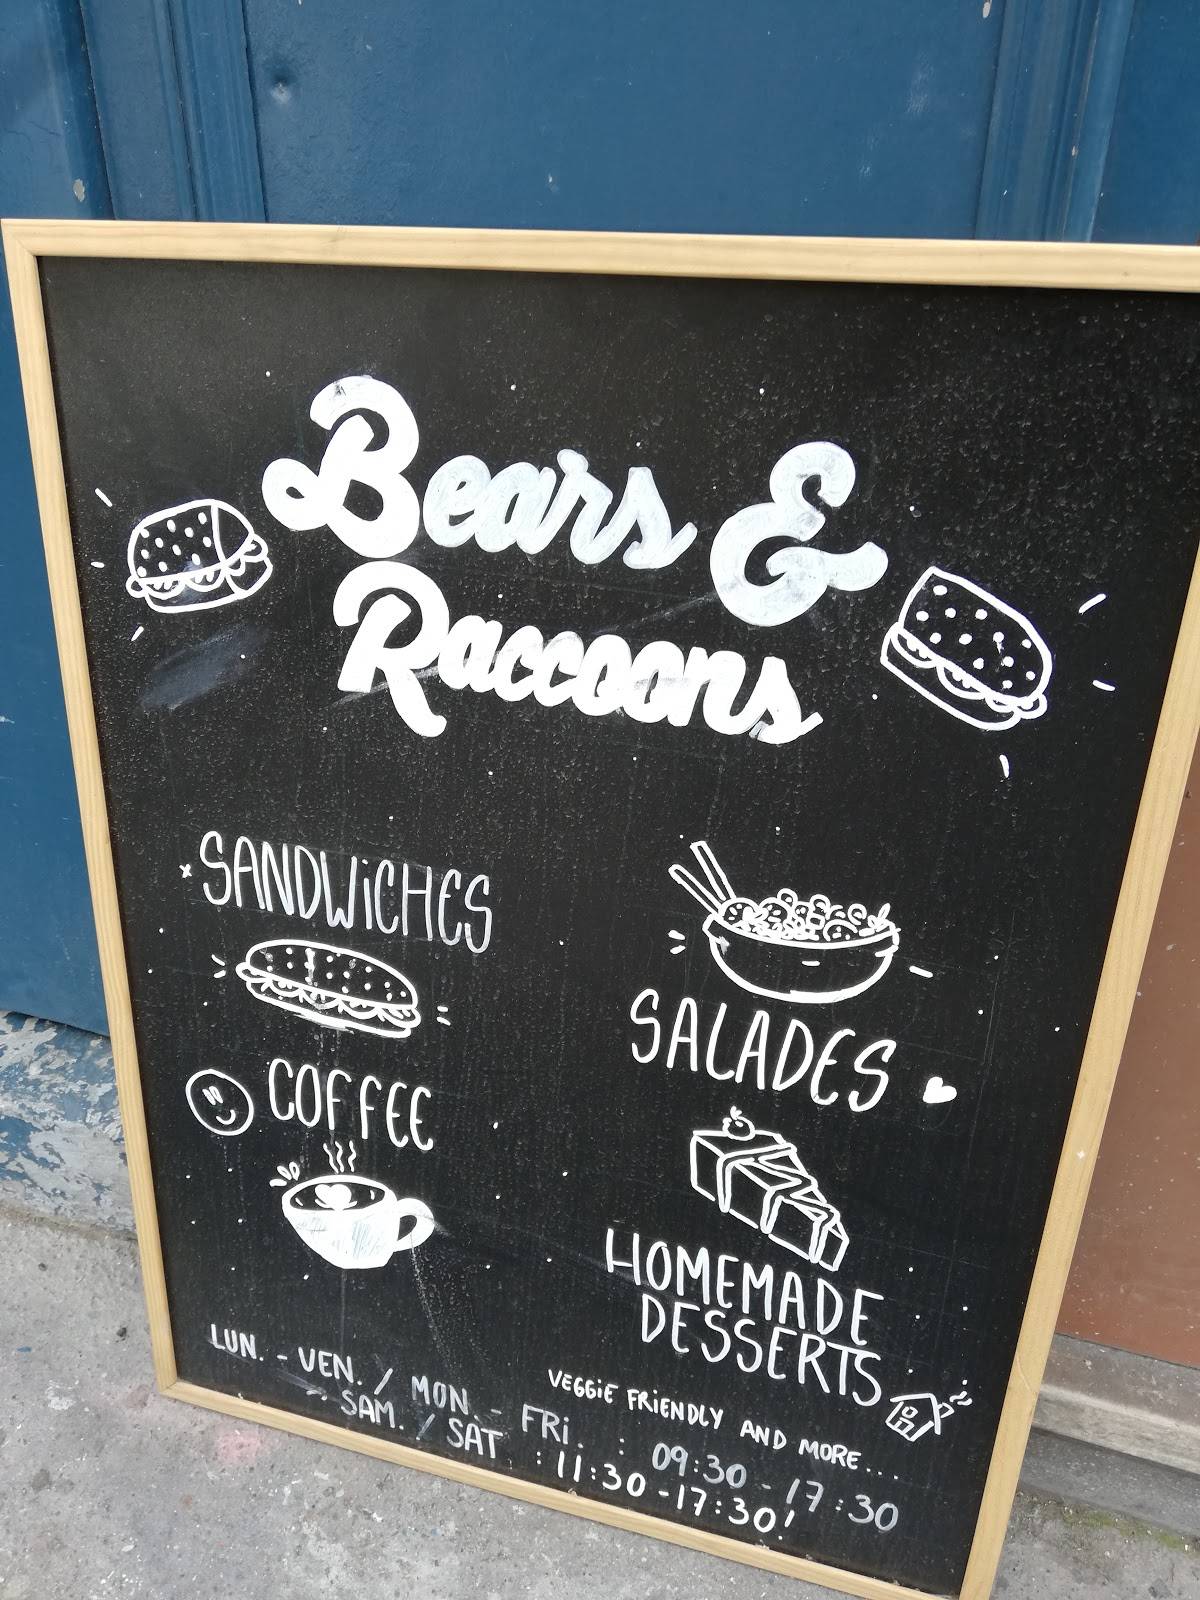 Bears &
Raccoons
SANDWiCHES
SALADES
COFFEE
HOMEMADE
DESSERTS
VEGGiE FRiENDLY AND MORE...
LUN. - VEN. / MON. - FRi. : 09:30 - 17:30
SAM. / SAT : 11:30 - 17:30!